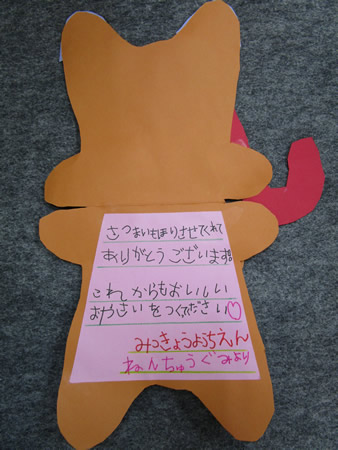 さつまいもほりさせてくれて
ありがとうございます。
これからもおいしい
おやさいをつくてださい♡
みっきょうようちえん
ねんちゅうぐみより